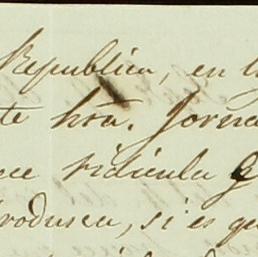 Republica, en l
te hora. Jorna
ce ridicula
rodusca, si es qu